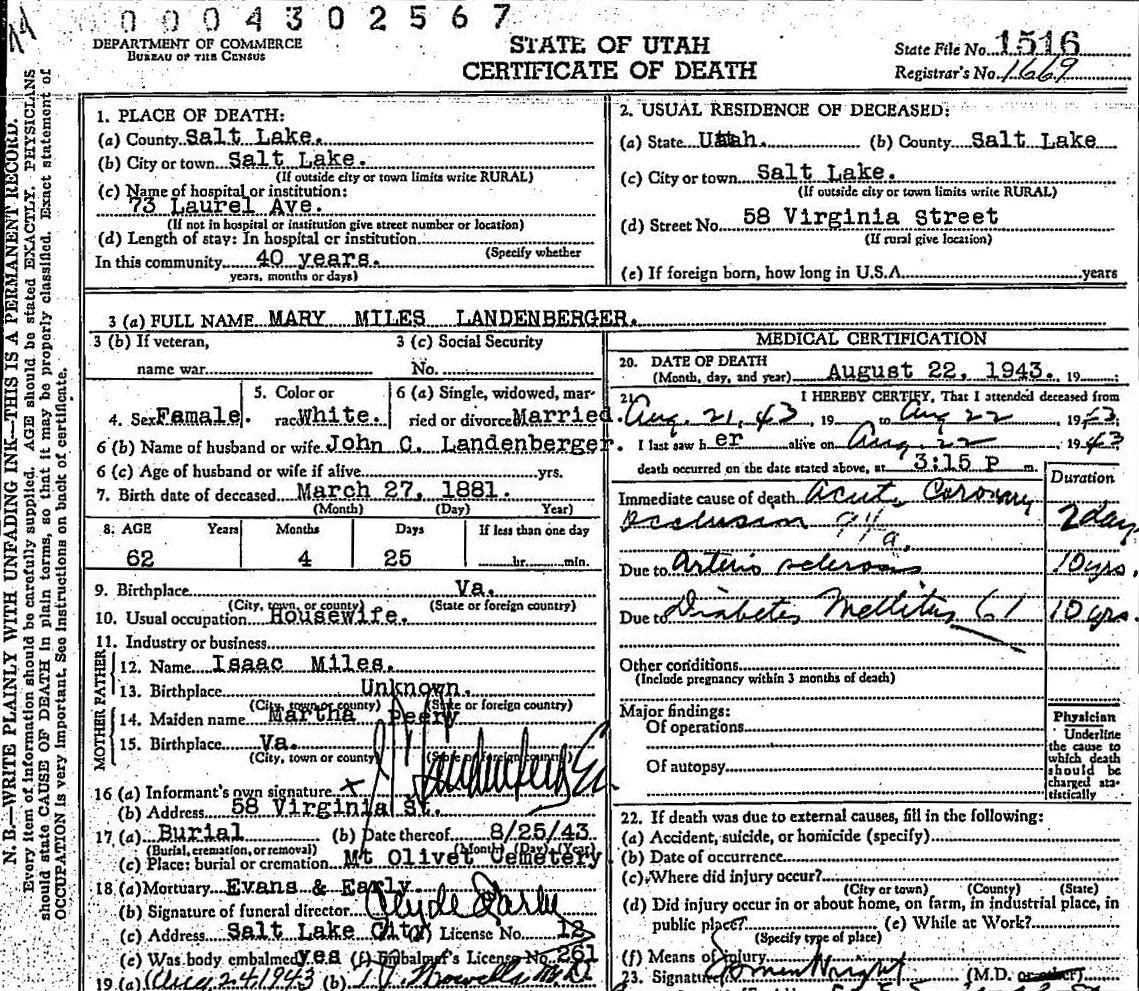 0 0 0 4 3 0 2 5 6 7
DEPARTMENT OF COMMERCE
BUREAU OF THE CENSUS
STATE OF UTAH
CERTIFICATE OF DEATH
State File No. 1516
Registrar's No. 1669
N. B.—WRITE PLAINLY WITH UNFADING INK—THIS IS A PERMANENT RECORD.
Every item of information should be carefully supplied. AGE should be stated EXACTLY. PHYSICIANS
should state CAUSE OF DEATH in plain terms, so that it may be properly classified. Exact statement of
OCCUPATION is very important. See instructions on back of certificate.
1. PLACE OF DEATH:
(a) County Salt Lake.
(b) City or town Salt Lake.
(If outside city or town limits write RURAL)
(c) Name of hospital or institution:
73 Laurel Ave.
(If not in hospital or institution give street number or location)
(d) Length of stay: In hospital or institution
(Specify whether
In this community 40 years.
years, months or days)
2. USUAL RESIDENCE OF DECEASED:
(a) State Utah. (b) County Salt Lake
(c) City or town Salt Lake.
(If outside city or town limits write RURAL)
(d) Street No. 58 Virginia Street
(If rural give location)
(e) If foreign born, how long in U.S.A. years
3 (a) FULL NAME MARY MILES LANDENBERGER.
3 (b) If veteran,
name war
3 (c) Social Security
No.
4. Sex Famale.
5. Color or
race White.
6 (a) Single, widowed, mar-
ried or divorced Married.
6 (b) Name of husband or wife John C. Landenberger.
6 (c) Age of husband or wife if alive yrs.
7. Birth date of deceased March 27, 1881.
(Month) (Day) Year)
8. AGE Years Months Days If less than one day
62 4 25 hr. min.
9. Birthplace Va.
(City, town, or county) (State or foreign country)
10. Usual occupation Housewife.
11. Industry or business
FATHER
12. Name Isaac Miles.
13. Birthplace Unknown.
(City, town or county) (State or foreign country)
MOTHER
14. Maiden name Martha Peery
15. Birthplace Va.
(City, town or county) (State or foreign country)
16 (a) Informant's own signature x
(b) Address 58 Virginia St.
17 (a) Burial (b) Date thereof 8/25/43
(Burial, cremation, or removal) (Month) (Day) (Year)
(c) Place: burial or cremation Mt Olivet Cemetery
18 (a) Mortuary Evans & Early
(b) Signature of funeral director Clyde Early
(c) Address Salt Lake City (d) License No. 12
(e) Was body embalmed yea (f) Embalmer's License No. 261
19 (a) Aug 24 1943 (b)
MEDICAL CERTIFICATION
20. DATE OF DEATH
(Month, day, and year) August 22, 1943. 19
21. I HEREBY CERTIFY, That I attended deceased from
Aug. 21, 43 19 to Aug 22 1943.
I last saw h er alive on Aug. 22 1943
death occurred on the date stated above, at 3:15 P m.
Duration
Immediate cause of death Acute Coronary
Occlusion 94a. 2 day
Due to Arterio sclerosis 10 yrs.
Due to Diabetes Mellitus 61 10 yrs.
Other conditions
(Include pregnancy within 3 months of death)
Major findings:
Of operations
Of autopsy
Physician
Underline
the cause to
which death
should be
charged sta-
tistically
22. If death was due to external causes, fill in the following:
(a) Accident, suicide, or homicide (specify)
(b) Date of occurrence
(c) Where did injury occur?
(City or town) (County) (State)
(d) Did injury occur in or about home, on farm, in industrial place, in
public place? (e) While at Work?
(Specify type of place)
(f) Means of injury
23. Signature Wright (M.D. or other)